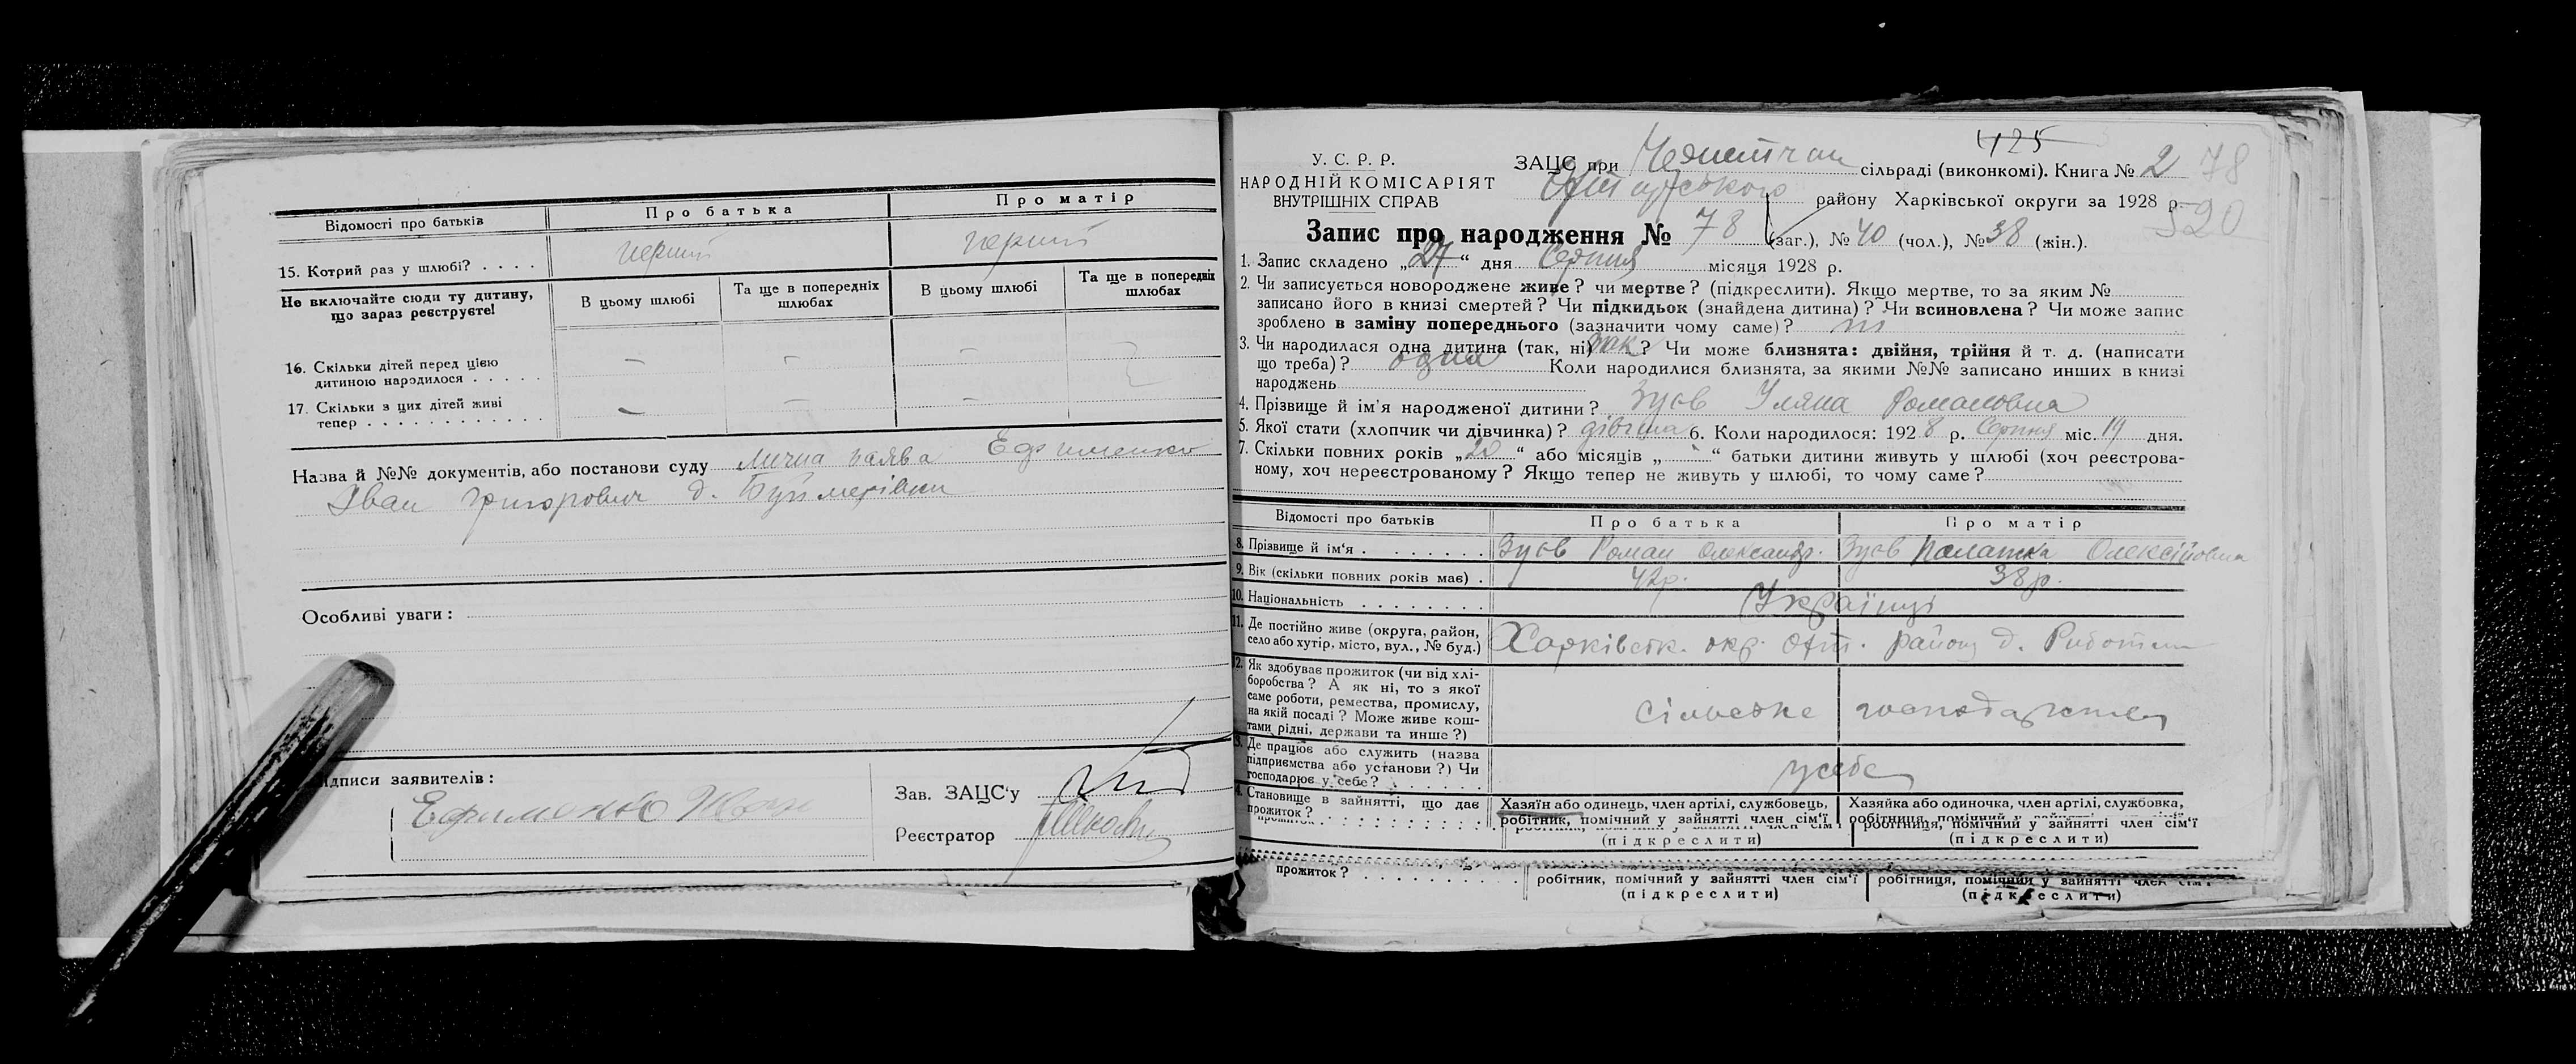 Відомості про батьків Про батька Про матір
15. Котрий раз у шлюбі? . . . . перший перший
Не включайте сюди ту дитину, що зараз реєструєте! В цьому шлюбі Та ще в попередніх шлюбах В цьому шлюбі Та ще в попередніх шлюбах
16. Скільки дітей перед цією
дитиною народилося . . . . . — — —
17. Скільки з цих дітей живі
тепер . . . . . . . . . . . . . — — —
Назва й №№ документів, або постанови суду лична заява Ефименко
Іван Григорович д. Буймерівки
Особливі уваги :
ідписи заявителів :
Ефименко Иван
Зав. ЗАЦС'у
Реєстратор
425
У. С. Р. Р.
НАРОДНІЙ КОМІСАРІЯТ
ВНУТРІШНІХ СПРАВ
ЗАЦС при сільраді (виконкомі). Книга № 2 78
району Харківської округи за 1928 р.
520
Запис про народження № 78 (заг.), № 40 (чол.), № 38 (жін.).
1. Запис складено „27“ дня Серпня місяця 1928 р.
2. Чи записується новороджене живе? чи мертве? (підкреслити). Якщо мертве, то за яким №
записано його в книзі смертей? Чи підкидьок (знайдена дитина)? Чи всиновлена? Чи може запис
зроблено в заміну попереднього (зазначити чому саме)? ні
3. Чи народилася одна дитина (так, ні) так? Чи може близнята: двійня, трійня й т. д. (написати
що треба)? одна Коли народилися близнята, за якими №№ записано инших в книзі
народжень
4. Прізвище й ім'я народженої дитини? Зуєв Уляна Романовна
5. Якої стати (хлопчик чи дівчинка)? дівчина 6. Коли народилося: 1928 р. Серпня міс. 19 дня.
7. Скільки повних років „20“ або місяців „ “ батьки дитини живуть у шлюбі (хоч реєстрова-
ному, хоч нереєстрованому? Якщо тепер не живуть у шлюбі, то чому саме?
Відомості про батьків Про батька Про матір
8. Прізвище й ім'я . . . . . . . Зуєв Роман Олександр. Зуєв Палажка Олексійовна
9. Вік (скільки повних років має) . 42р. 38 р.
10. Національність . . . . . . . . Українці
11. Де постійно живе (округа, район,
село або хутір, місто, вул., № буд.) Харківськ. окр. Охт. району д.
12. Як здобуває прожиток (чи від хлі-
боробства? А як ні, то з якої
саме роботи, ремества, промислу,
на якій посаді? Може живе кош-
тами рідні, держави та инше?) сільське господарство
3. Де працює або служить (назва
підприємства або установи?) Чи
господарює у себе? . . . . . . . у себе
4. Становище в зайнятті, що дає
прожиток? . . . . . . . . . . .
Хазяїн або одинець, член артілі, службовець,
робітник, помічний у зайнятті член сім'ї
(підкреслити)
Хазяйка або одиночка, член артілі, службовка,
робітниця, помічний у зайнятті член сім'ї
(підкреслити)
прожиток? . . . . . . . . . . . робітник, помічний у зайнятті член сім'ї робітниця, помічний у зайнятті член сім'ї
(підкреслити) (підкреслити)